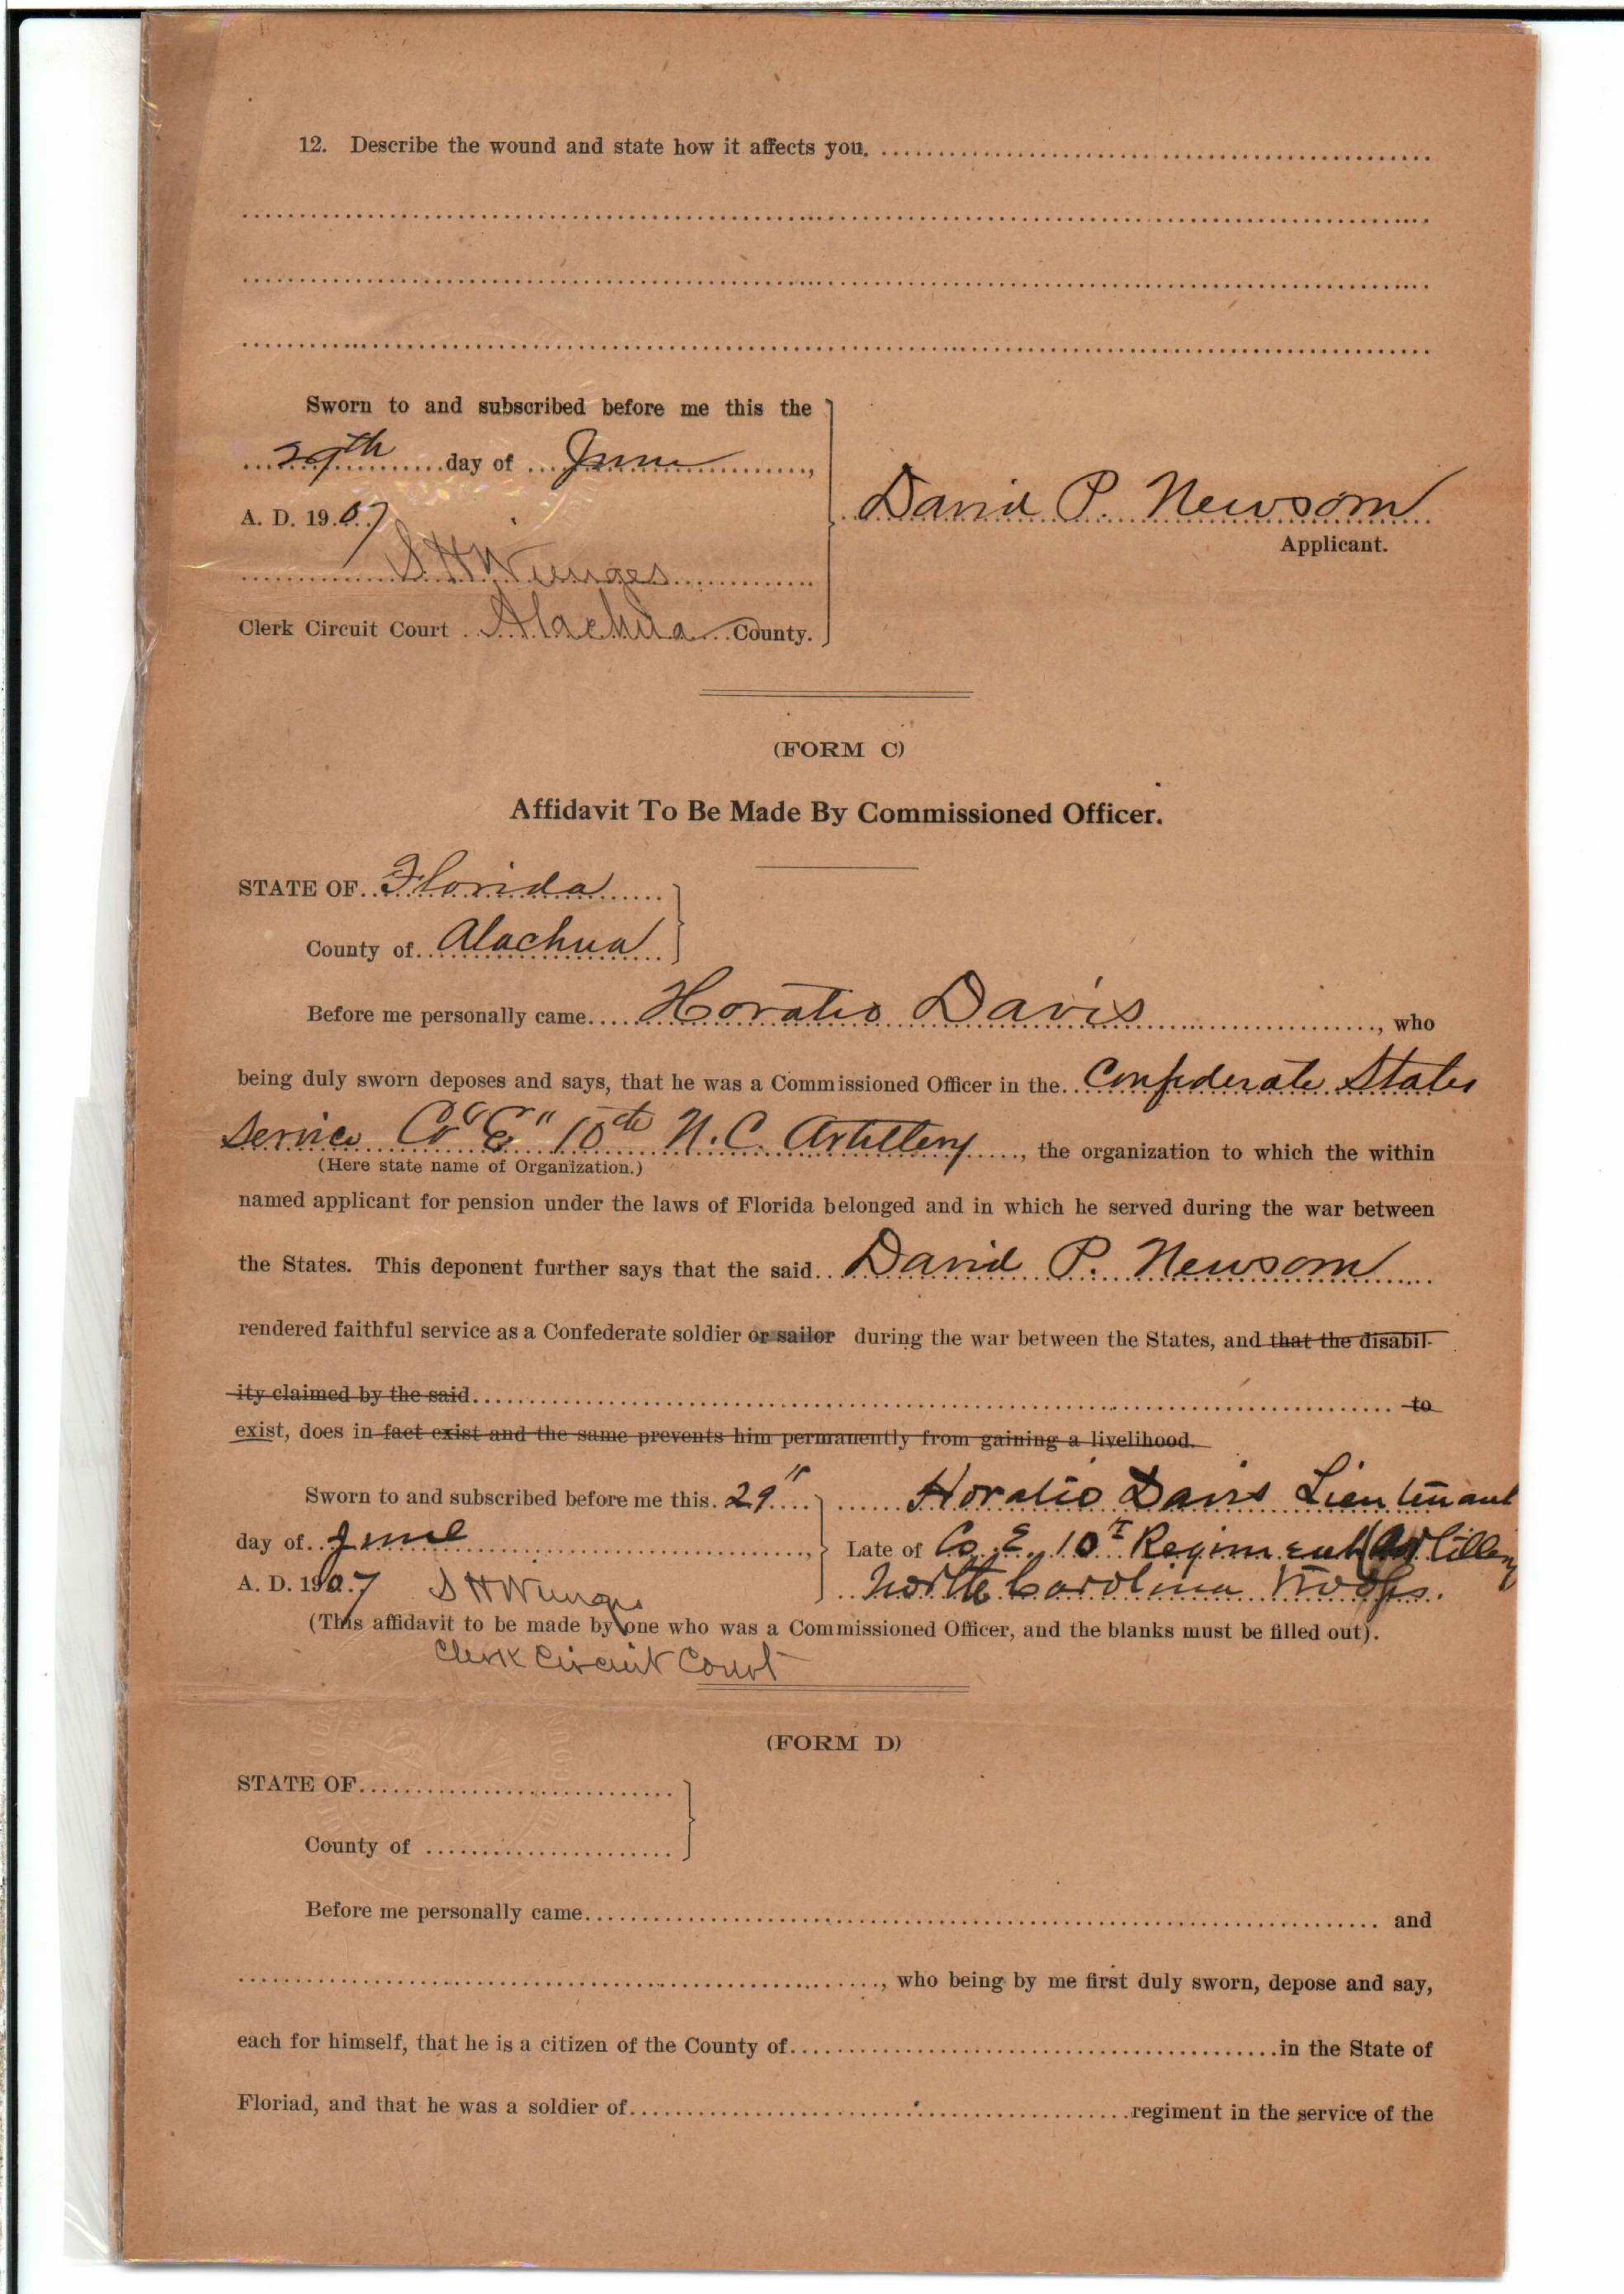 12. Describe the wound and state how it affects you.
Sworn to and subscribed before me this the
29th day of June,
A. D. 1907
S H Wienges
Clerk Circuit Court Alachua County.
David P. Newsom
Applicant.
(FORM C)
Affidavit To Be Made By Commissioned Officer.
STATE OF Florida
County of Alachua
Before me personally came Horatio Davis, who
being duly sworn deposes and says, that he was a Commissioned Officer in the Confederate States
Service Co "E" 10th N.C. Artillery, the organization to which the within
(Here state name of Organization.)
named applicant for pension under the laws of Florida belonged and in which he served during the war between
the States. This deponent further says that the said David P. Newsom
rendered faithful service as a Confederate soldier or sailor during the war between the States, and that the disabil-
ity claimed by the said to
exist, does in fact exist and the same prevents him permanently from gaining a livelihood.
Sworn to and subscribed before me this 29"
day of June,
A. D. 1907 S H Wienges
Horatio Davis Lieutenant
Late of Co. E 10t Regiment (Artillery
North Carolina Troops.
(This affidavit to be made by one who was a Commissioned Officer, and the blanks must be filled out).
Clerk Circuit Court
(FORM D)
STATE OF
County of
Before me personally came and
, who being by me first duly sworn, depose and say,
each for himself, that he is a citizen of the County of in the State of
Floriad, and that he was a soldier of regiment in the service of the